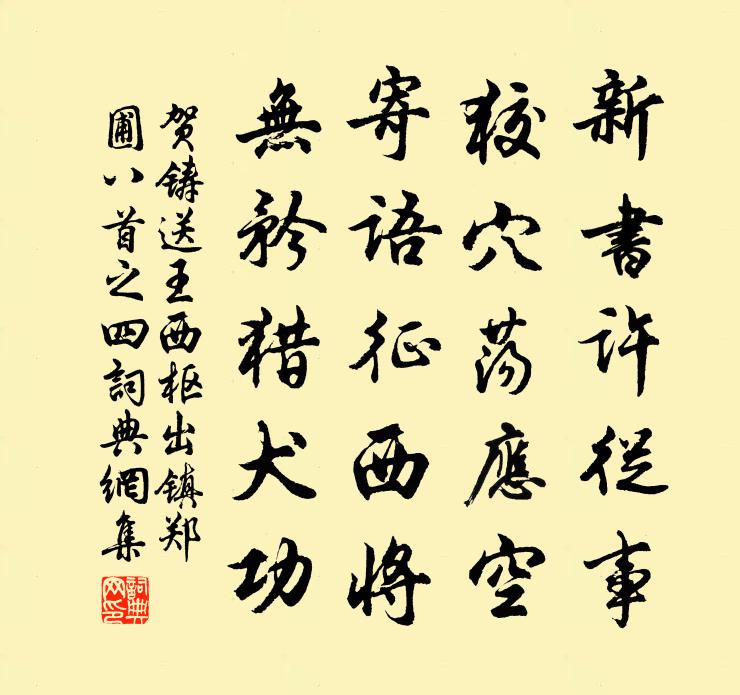 新書許從事
狡穴蕩應空
寄語征西將
無矜猎犬功
贺鑄送王西枢出鎮郑
圃八首之四詞典網集
詞典
网印